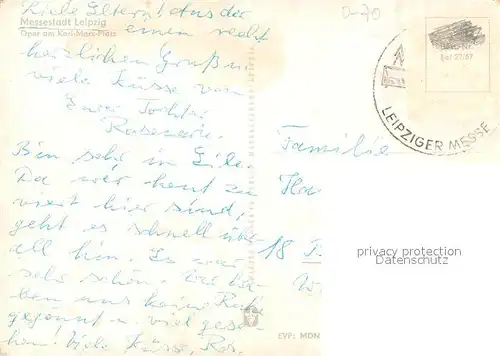 Liebe Eltern! Aus der
Messestadt Leipzig
einen recht
Oper am Karl-Marx-Platz
herzlichen Gruß u.
viele Küsse von
Eurer Tochter
Rosemarie.
Bin sehr in Eile.
Da wir heut zu
viert hier sind,
geht es schnell über-
all hin. Es war
sehr schön. Wir ha-
ben uns keine Ruh
gegönnt u. viel gese-
hen! Viele Küsse, Ros.
D-70
LEIPZIGER MESSE
Familie
18
privacy protection
Datenschutz
EVP: MDN